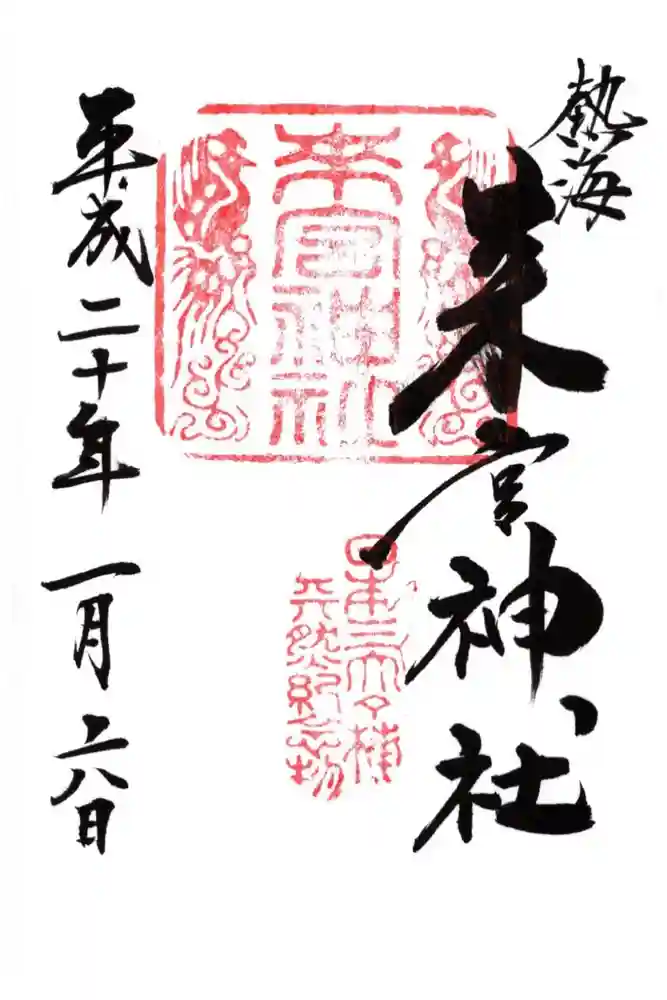 熱海
来宮神社
来宮神社
日本三大楠
天然紀念物
平成二十年一月六日